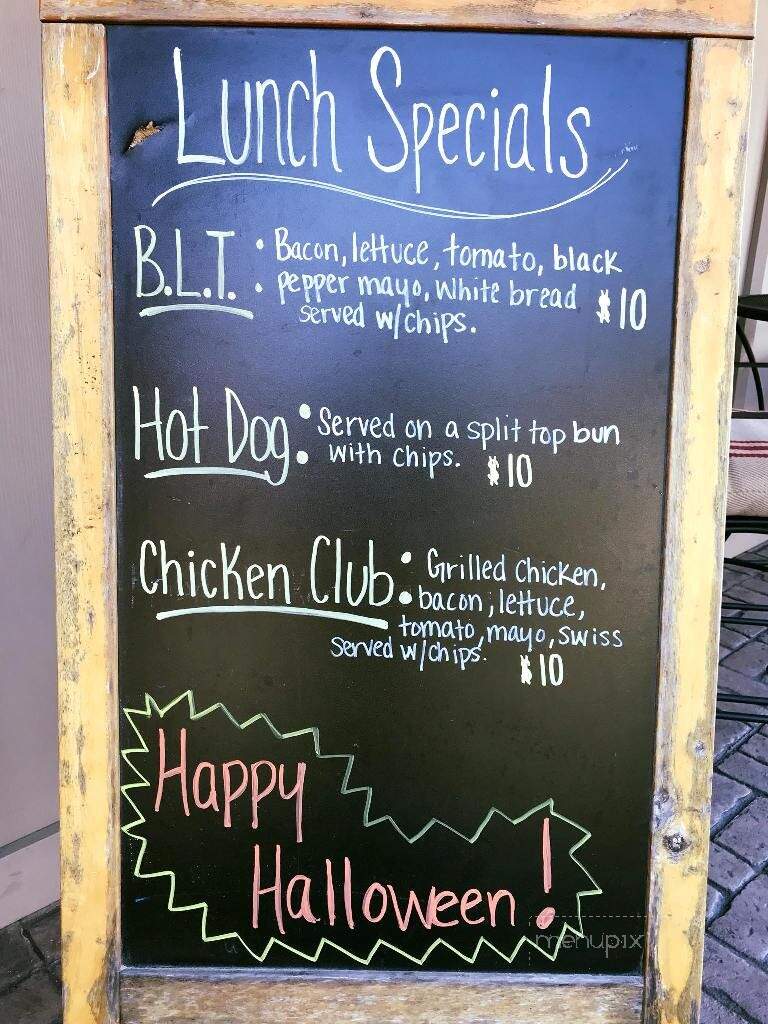 Lunch Specials
B.L.T. : Bacon, lettuce, tomato, black
pepper mayo, white bread $10
served w/chips.
Hot Dog: Served on a split top bun
with chips. $10
Chicken Club: Grilled chicken,
bacon, lettuce,
tomato, mayo, swiss
Served w/chips. $10
Happy
Halloween!
menupix